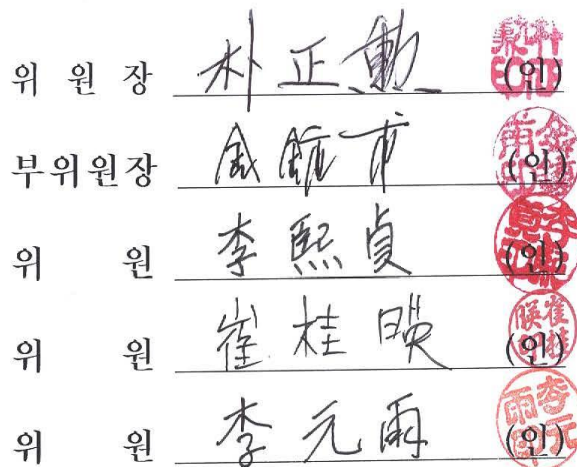 위 원 장 朴正勳 (인)
부위원장 金 (인)
위 원 李熙貞 (인)
위 원 崔桂暎 (인)
위 원 李元雨 (인)